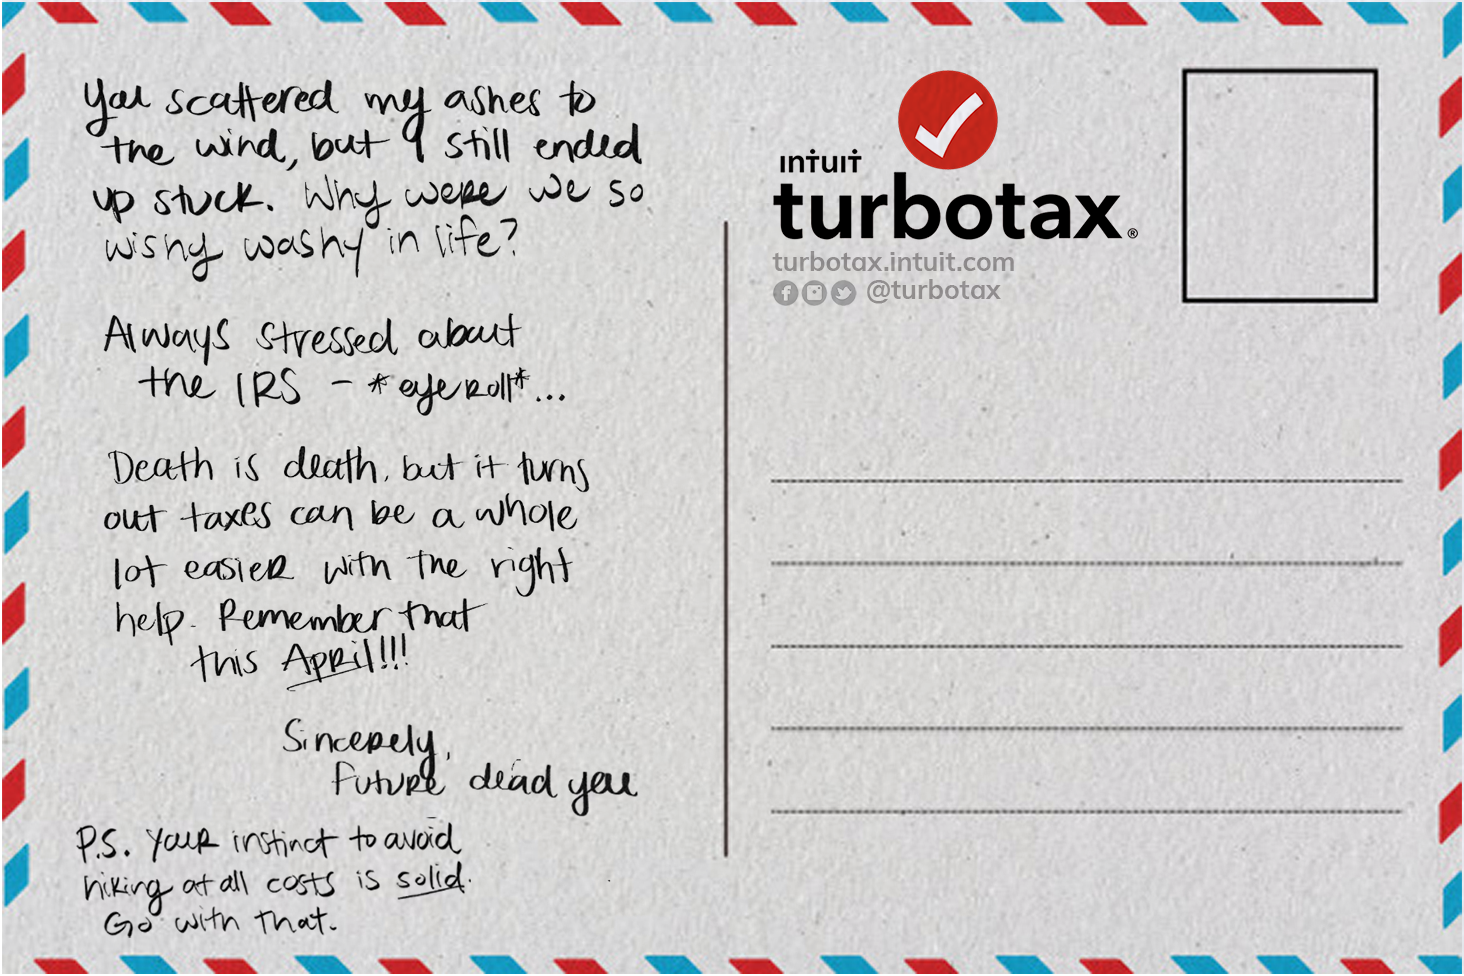 You scattered my ashes to
the wind, but I still ended
up stuck. Why were we so
wishy washy in life?
Always stressed about
the IRS - *eyeroll*...
Death is death, but it turns
out taxes can be a whole
lot easier with the right
help. Remember that
this April!!!
Sincerely,
future dead you
P.S. Your instinct to avoid
hiking at all costs is solid.
Go with that.
intuit
turbotax®
turbotax.intuit.com
@turbotax